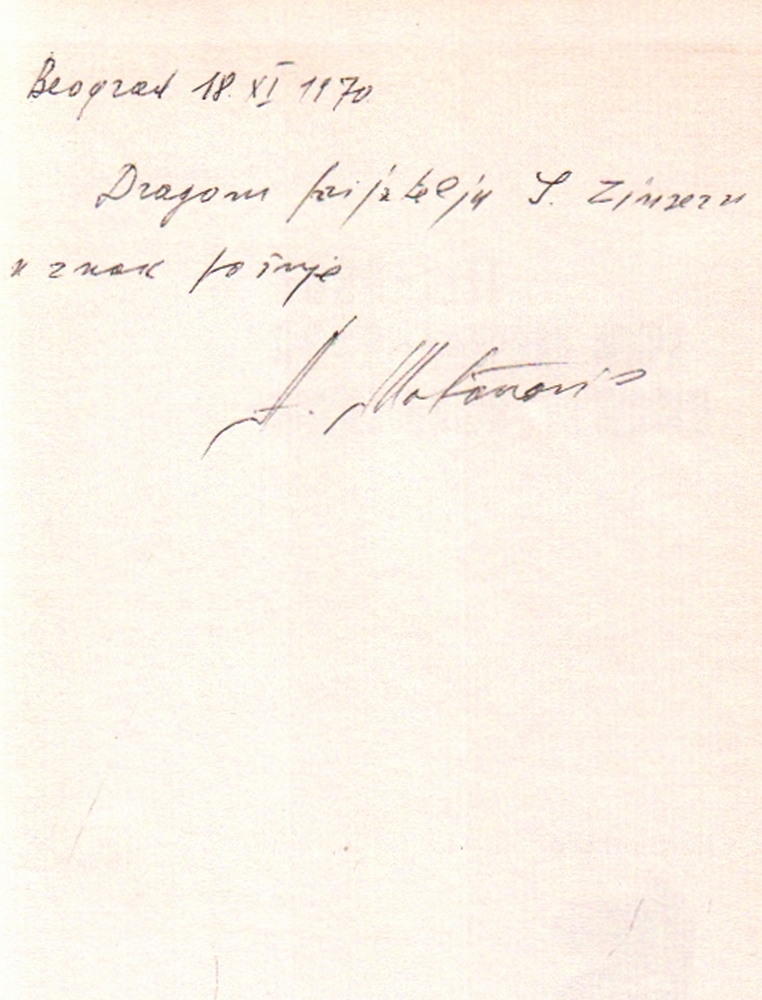 Beograd 18. XI 1970
Dragom prijatelju S. Zinzeru
u znak pažnje
A. Matanović